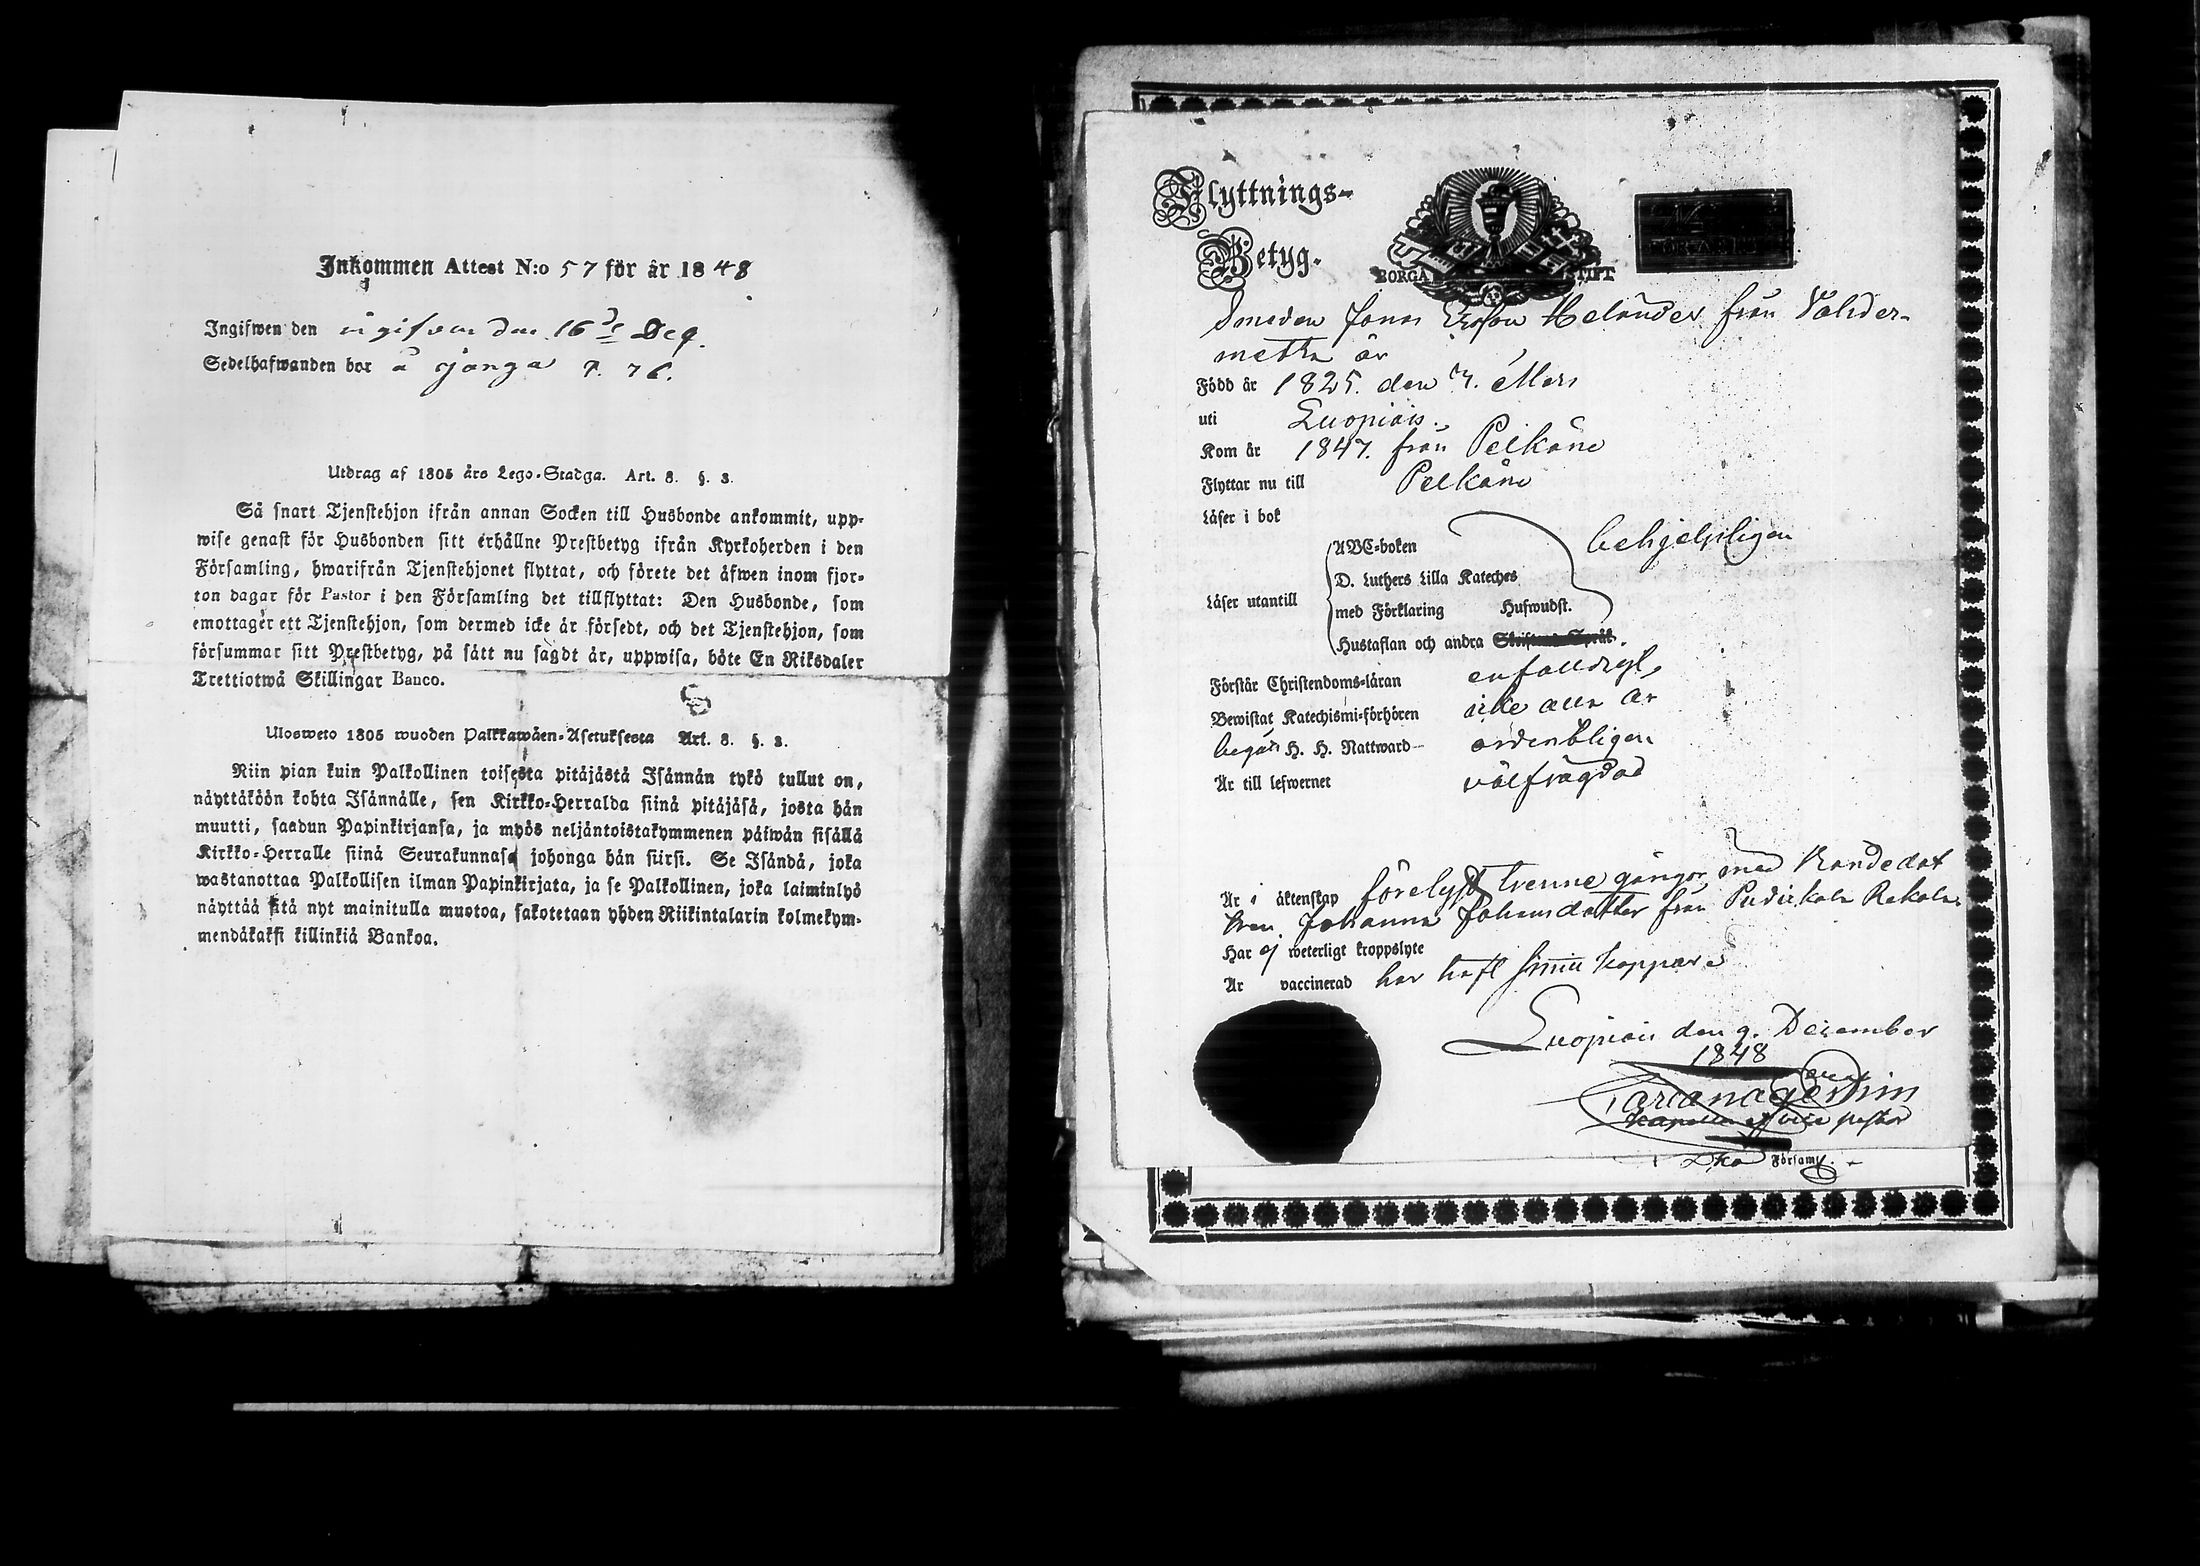 Inkommen Attest N:o 57 för år 1848
Ingifwen den ingifven den 16de Dec.
Sedelhafwanden bor å
Utdrag af 1805 års Lego-Stadga. Art. 8. §. 3.
Så snart Tjenstehjon ifrån annan Socken till Husbonde ankommit, upp-
wise genast för Husbonden sitt erhållne Prestbetyg ifrån Kyrkoherden i den
Församling, hwarifrån Tjenstehjonet flyttat, och förete det äfwen inom fjor-
ton dagar för Pastor i den Församling det tillflyttat: Den Husbonde, som
emottager ett Tjenstehjon, som dermed icke är försedt, och det Tjenstehjon, som
försummar sitt Prestbetyg, på sätt nu sagdt är, uppwisa, böte En Riksdaler
Trettiotwå Skillingar Banco.
Ulosweto 1805 wuoden Palkkawäen-Asetuksesta Art. 8. §. 3.
Niin pian kuin Palkollinen toisesta pitäjästä Isännän tykö tullut on,
näyttäköön kohta Isännälle, sen Kirkko-Herralda siinä pitäjäsä, josta hän
muutti, saadun Papinkirjansa, ja myös neljäntoistakymmenen päiwän sisällä
Kirkko-Herralle siinä Seurakunnasa johonga hän siirsi. Se Isändä, joka
wastanottaa Palkollisen ilman Papinkirjata, ja se Palkollinen, joka laiminlyö
näyttää sitä nyt mainitulla muotoa, sakotetaan yhden Riikintalarin kolmekym-
mendäkaksi killinkiä Bankoa.
Flyttnings-
Betyg.
BORGÅ STIFT
Smeden Jonas Ersson Helander från
är
Född år 1825. den 7. Mars
uti Luopiois.
Kom år 1847. från Pelkäne
Flyttar nu till Pelkäne
Läser i bok
ABC-boken behjelpligen
D. Luthers Lilla Kateches
Läser utantill med Förklaring Hufwudst.
Hustaflan och andra
Förstår Christendoms-läran enfalldigt,
Bewistat Katechismi-förhören icke alla år
begått H. H. Nattward ordentligen
Är till lefwernet välfrägdad
Är i äktenskap förelyst trenne gånger med
Johanna Johansdotter från
Har ej weterligt kroppslyte
Är vaccinerad har haft Smittkoppor
Luopiois den 9. December
1848
vice pastor
Församl.